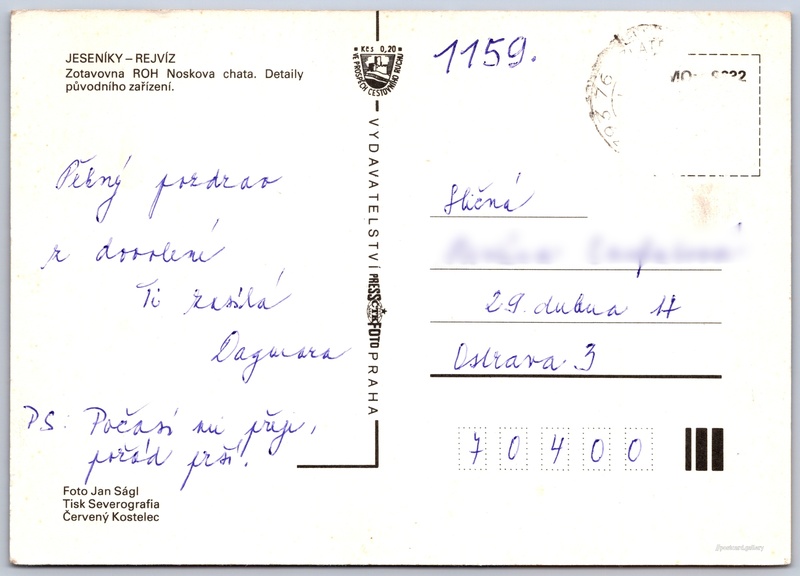 JESENÍKY – REJVÍZ
Zotavovna ROH Noskova chata. Detaily
původního zařízení.
Kčs 0,20
VE PROSPĚCH CESTOVNÍHO RUCHU
1159.
76
Pěkný pozdrav
z dovolení
Ti zasílá
Dagmara
PS: Počasí mi přeje,
pořád prší.
Foto Jan Ságl
Tisk Severografia
Červený Kostelec
VYDAVATELSTVÍ PRESSFOTO PRAHA
ČTK
Sličná
29. dubna 14
Ostrava 3
70400
//postcard.gallery